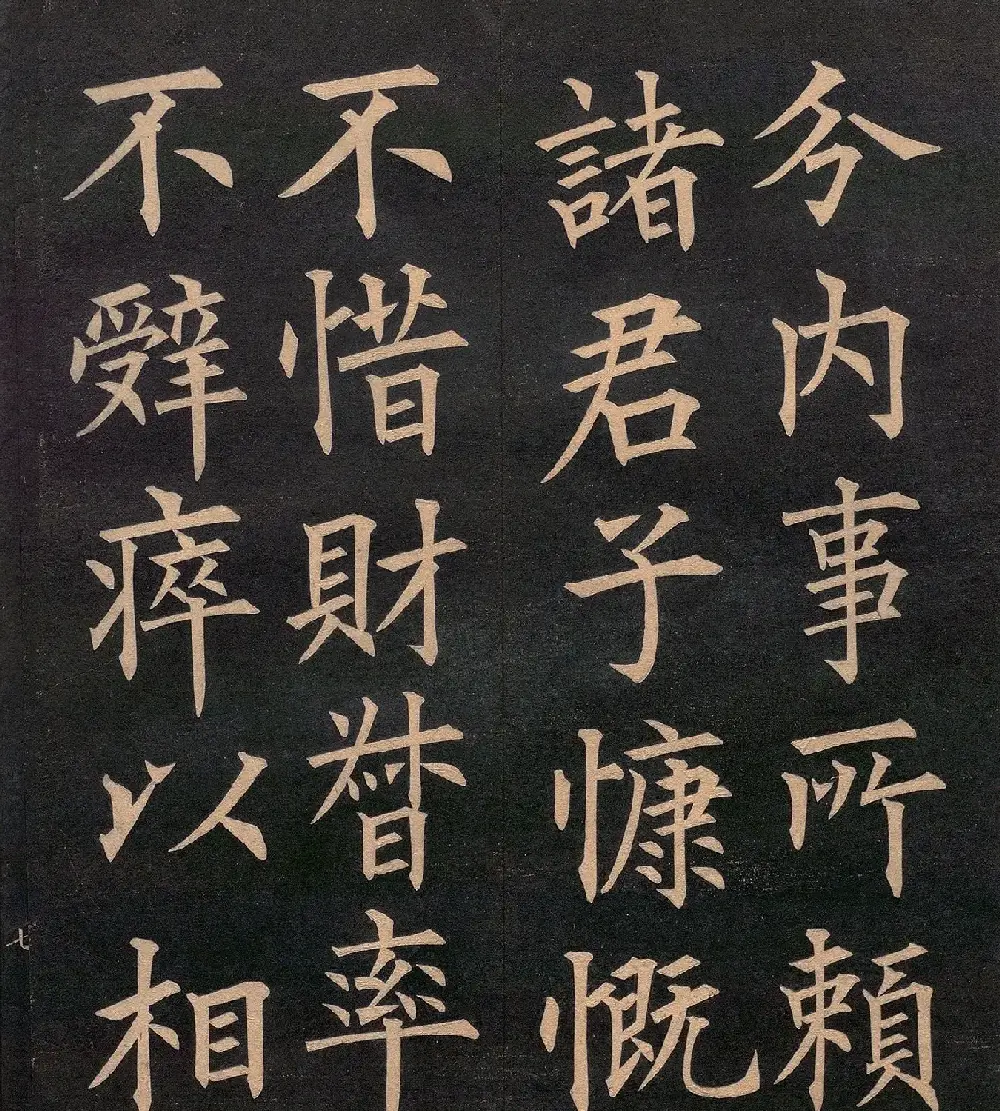 分内事所賴
諸君子慷慨
不惜財督率
不辭瘁以相
七